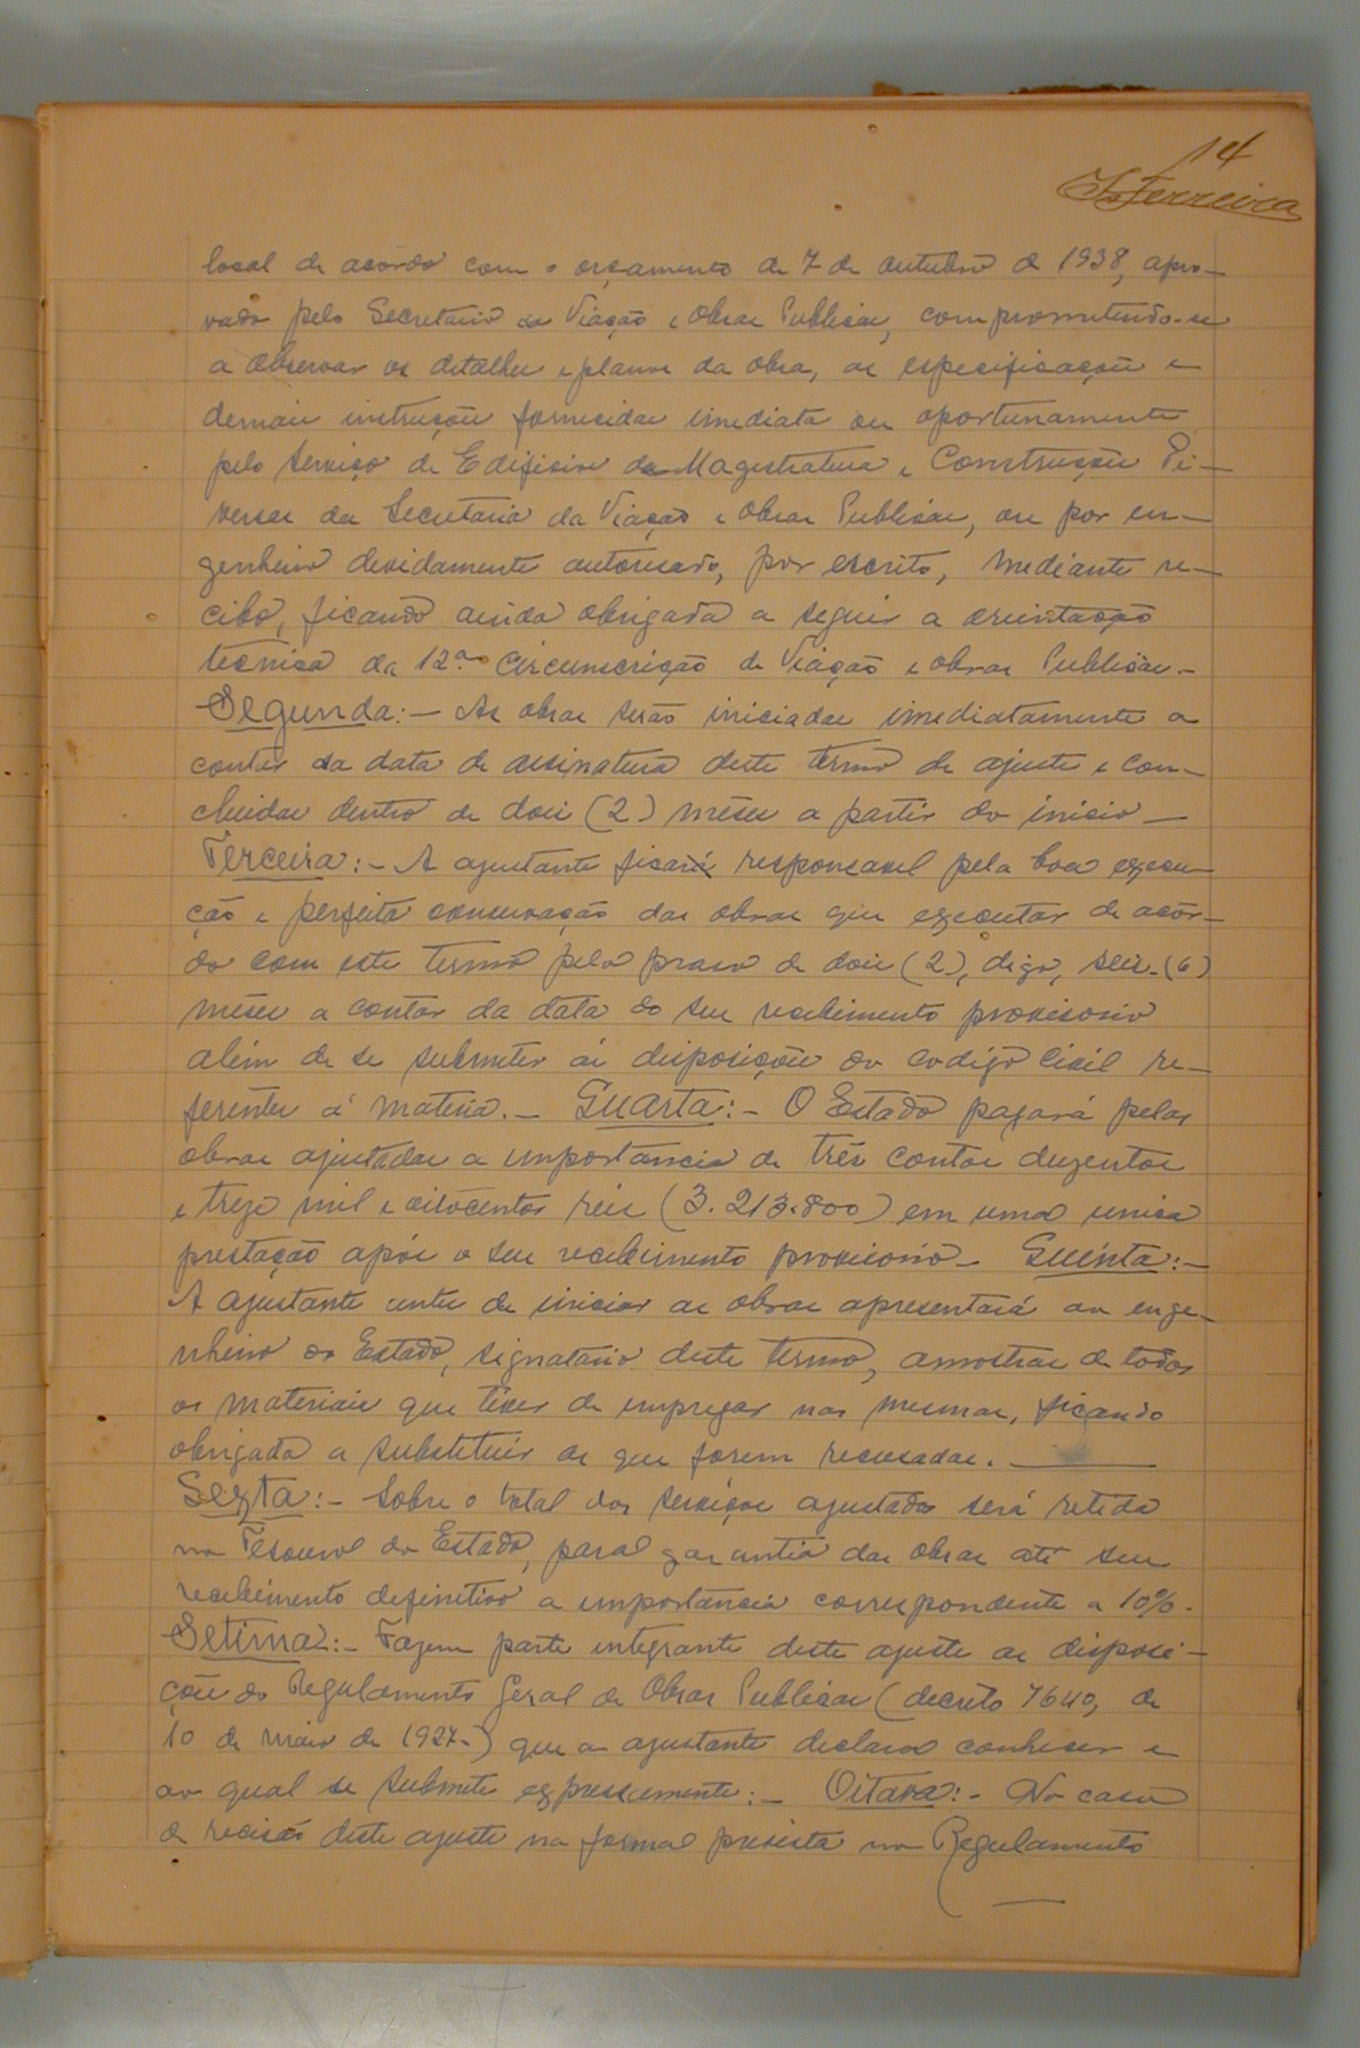 14
Ferreira
local de acôrdo com o orçamento de 7 de outubro de 1938, apro-
vado pelo Secretario da Viação e Obras Publicas, comprometendo-se
a observar os detalhes e planos da obra, as especificações e
demais instruções fornecidas imediata ou oportunamente
pelo Serviço de Edificios da Magistratura e Construções Di-
versas da Secretaria da Viação e Obras Publicas, ou por en-
genheiro devidamente autorisado, por escrito, mediante re-
cibo, ficando ainda obrigada a seguir a orientação
tecnica da 12ª Circumscrição de Viação e obras Publicas.-
Segunda:- As obras serão iniciadas imediatamente a
contar da data de assinatura deste termo de ajuste e con-
cluidas dentro de dois (2) mêses a partir do inicio -
Terceira:- A ajustante ficará responsavel pela boa execu-
ção e perfeita conservação das obras que executar de acôr-
do com este termo pelo praso de dois (2), digo, seis (6)
mêses a contar da data do seu recebimento provisorio
além de se submeter ás disposições do codigo civil re-
ferentes á materia.- Quarta:- O Estado pagará pelas
obras ajustadas a importancia de três contos duzentos
e treze mil e oitocentos réis (3.213.800) em uma unica
prestação após o seu recebimento provisorio - Quinta:-
A ajustante antes de iniciar as obras apresentará ao enge-
nheiro do Estado, signatario deste termo, amostras de todos
os materiais que tiver de empregar nas mesmas, ficando
obrigada a substituir as que forem recusadas.
Sexta:- Sobre o total dos serviços ajustados será retida
no Tesouro do Estado, para garantia das obras até seu
recebimento definitivo a importancia correspondente a 10%.
Setima:- Fazem parte integrante deste ajuste as disposi-
ções do Regulamento Geral de Obras Publicas (decreto 7640, de
10 de maio de 1927-) que a ajustante declara conhecer e
ao qual se submete expressamente:- Oitava:- No caso
de recisão deste ajuste na forma prevista no Regulamento